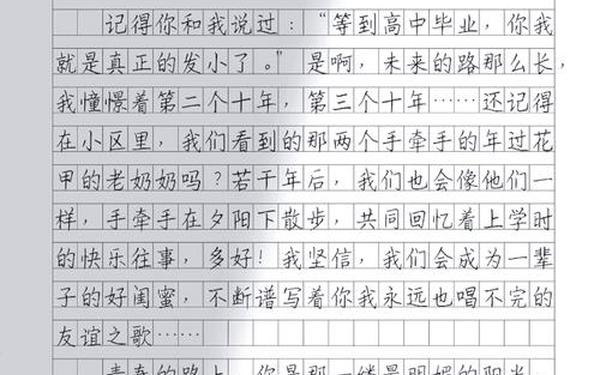 记得你和我说过：“等到高中毕业，你我
就是真正的发小了。”是啊，未来的路那么长，
我憧憬着第二个十年，第三个十年……还记得
在小区里，我们看到的那两个手牵手的年过花
甲的老奶奶吗？若干年后，我们也会像他们一
样，手牵手在夕阳下散步，共同回忆着上学时
的快乐往事，多好！我坚信，我们会成为一辈
子的好闺蜜，不断谱写着你我永远也唱不完的
友谊之歌……
青春的路上，你是那一缕最明媚的阳光，